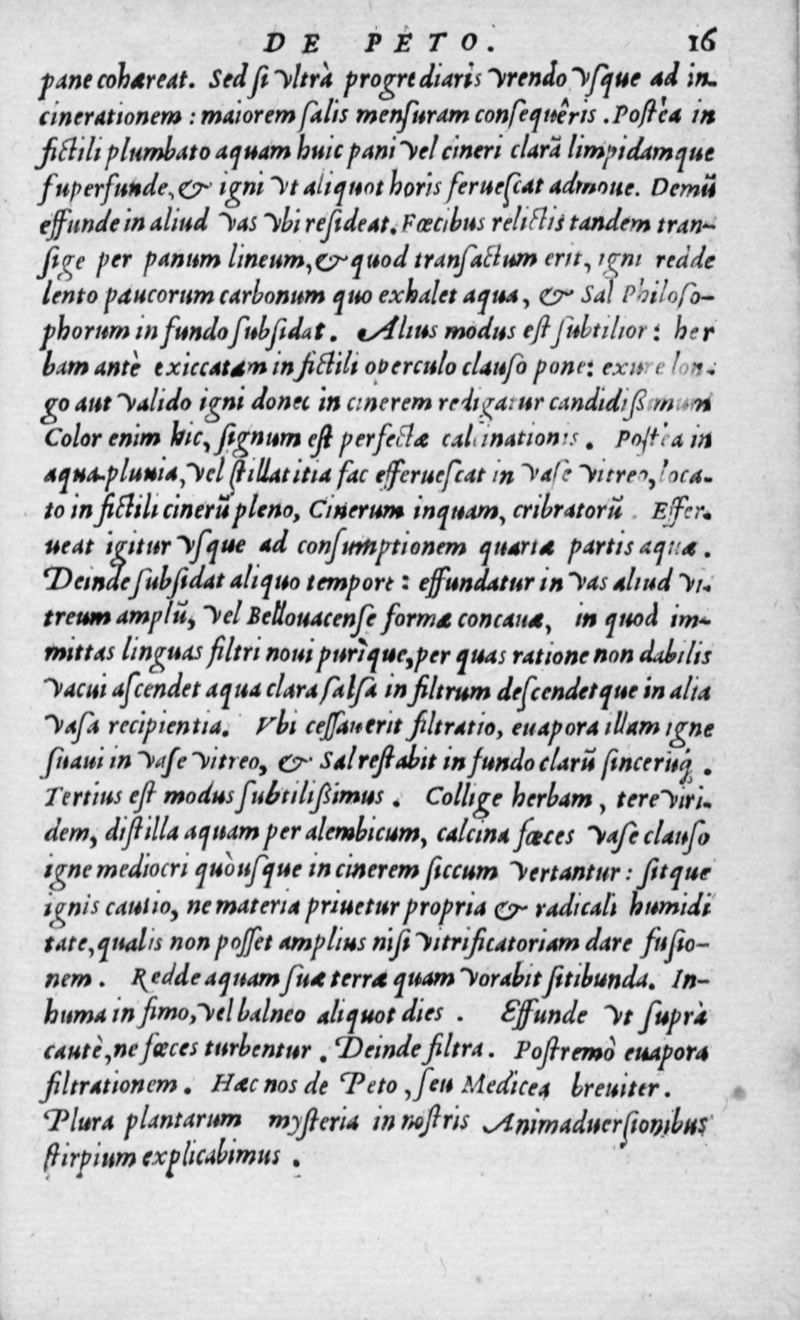 DE PETO. 16
pane cohæreat. Sed ſi vltrà progrediaris vrendo vſque ad in-
cinerationem : maiorem ſalis menſuram conſequêris . Poſtèa in
fictili plumbato aquam huic pani vel cineri clarā limpidamque
ſuperfunde, & igni vt aliquot horis ferueſcat admoue. Demū
effunde in aliud vas vbi reſideat. Fœcibus relictis tandem tran-
ſige per panum lineum, & quod tranſactum erit, igni redde
lento paucorum carbonum quo exhalet aqua, & Sal Philoſo-
phorum in fundo ſubſidat. Alius modus eſt ſubtilior : her
bam antè exiccatam in fictili operculo clauſo pone: exure lon-
go aut valido igni donec in cinerem redigatur candidißimum
Color enim hic, ſignum eſt perfectæ calcinationis . Poſtèa in
aqua pluuia, vel ſtillatitia fac efferueſcat in vaſe vitreo, loca-
to in fictili cinerū pleno, Cinerum inquam, cribratorū . Effer-
ueat igitur vſque ad conſumptionem quartæ partis aquæ .
Deinde ſubſidat aliquo tempore : effundatur in vas aliud vi-
treum amplū, vel Bellouacenſe formæ concauæ, in quod im-
mittas linguas filtri noui purìque, per quas ratione non dabilis
vacui aſcendet aqua clara ſalſa in filtrum deſcendetque in alia
vaſa recipientia. Vbi ceſſauerit filtratio, euapora illam igne
ſuaui in vaſe vitreo, & Sal reſtabit in fundo clarū ſincerūq́ .
Tertius eſt modus ſubtilißimus . Collige herbam , tere viri-
dem, diſtilla aquam per alembicum, calcina fœces vaſe clauſo
igne mediocri quòuſque in cinerem ſiccum vertantur : ſitque
ignis cautio, ne materia priuetur propria & radicali humidi
tate, qualis non poſſet amplius niſi vitrificatoriam dare fuſio-
nem . Redde aquam ſuæ terræ quam vorabit ſitibunda. In-
huma in fimo, vel balneo aliquot dies . Effunde vt ſuprà
cautè, ne fœces turbentur . Deinde filtra . Poſtremò euapora
filtrationem . Hæc nos de Peto , ſeu Medicea breuiter .
Plura plantarum myſteria in noſtris Animaduerſionibus
ſtirpium explicabimus .